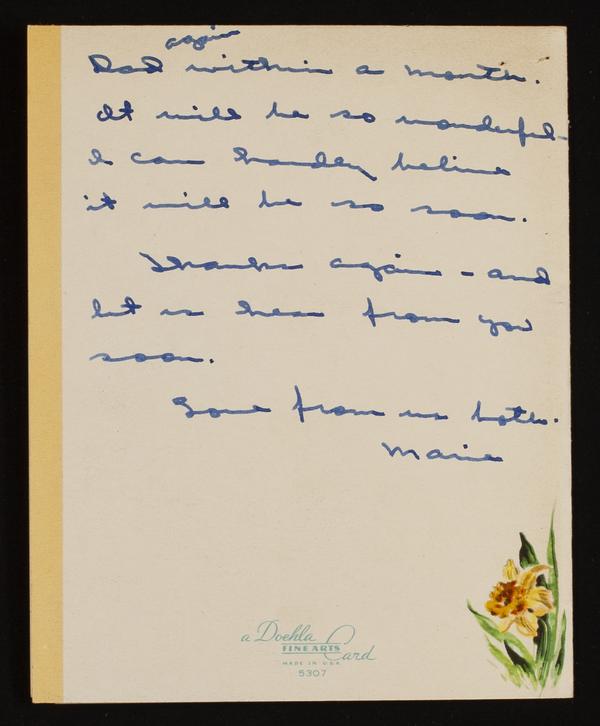 again
Dad within a month.
It will be so wonderful-
I can hardly believe
it will be so soon.
Thanks again - and
let us hear from you
soon.
Love from us both.
Marie
a Doehla
FINE ARTS
Card
MADE IN U.S.A.
5307